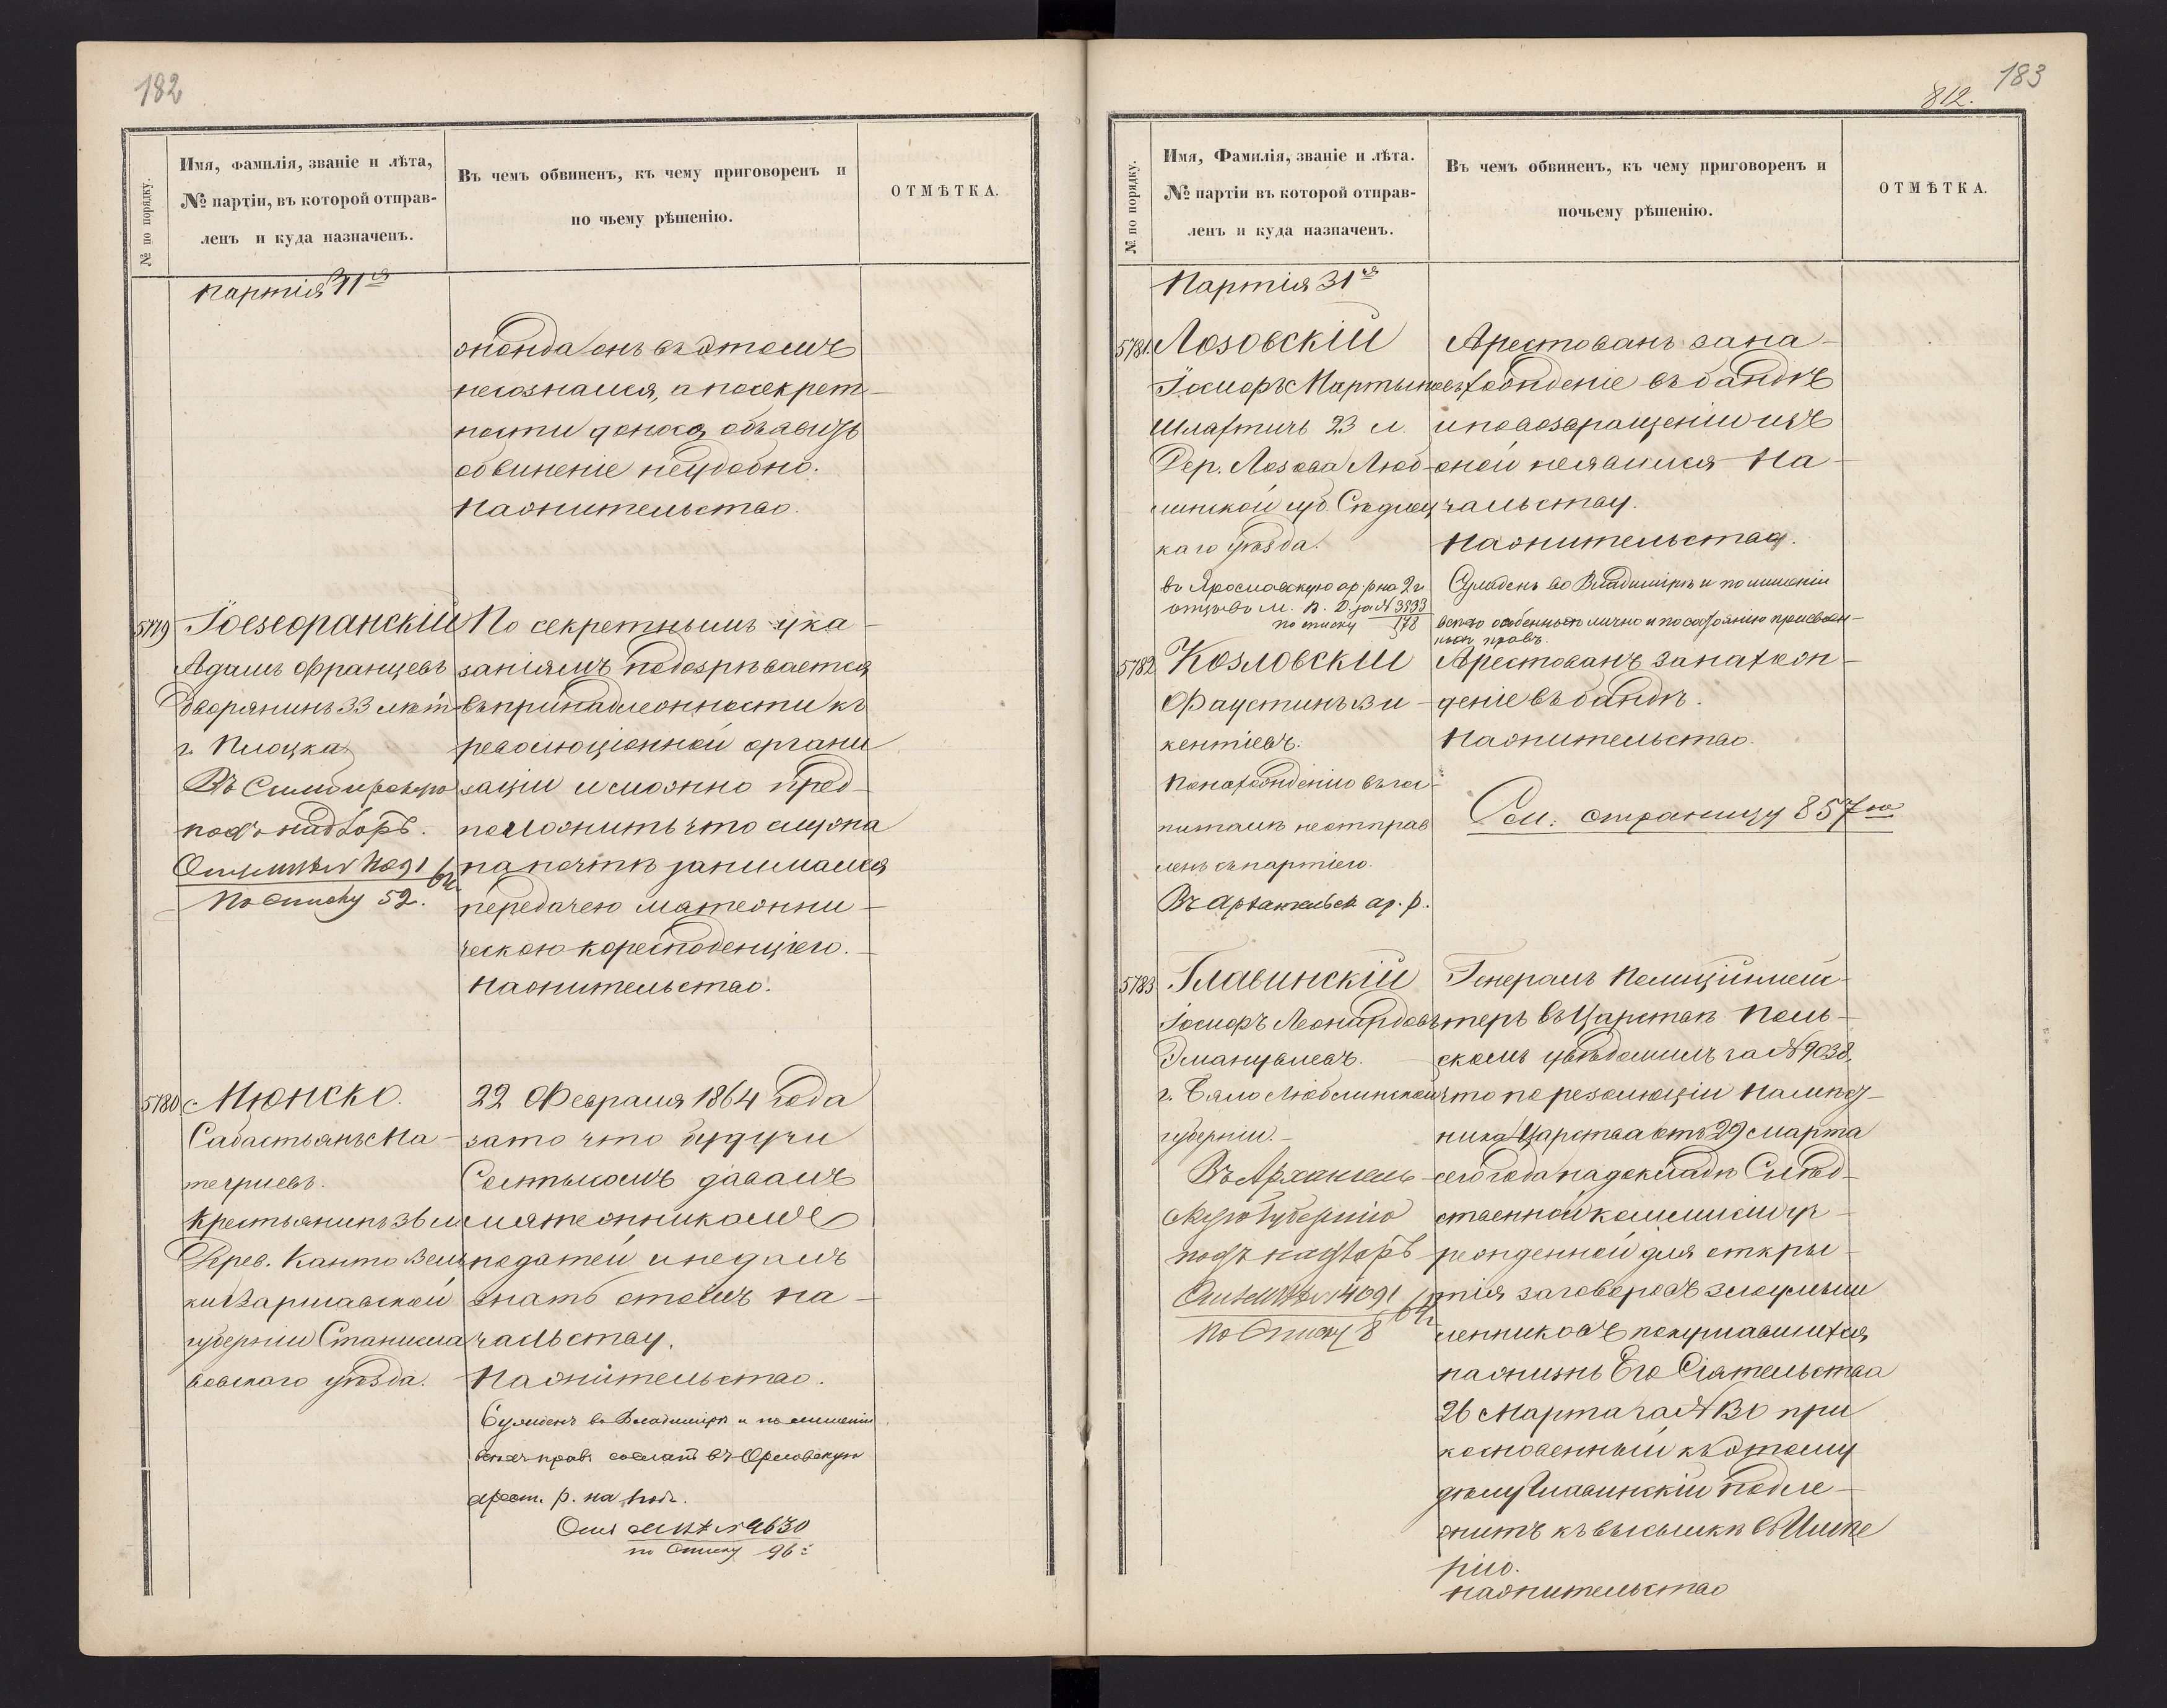 182
№ по порядку.
Имя, фамилія, званіе и лѣта,
№ партіи, въ которой отправ-
ленъ и куда назначенъ.
Въ чемъ обвиненъ, къ чему приговоренъ и
по чьему рѣшенію.
ОТМѢТКА.
Партія 31я
онъ въ этомъ
несознался, а по секрет-
ности доноса объявить
обвиненіе неудобно.
На жительство.
5779
Адамъ Францевъ
Дворянинъ 33 лѣтъ
г. Плоцка
подъ надзоръ.
По списку 52.
По секретнымъ ука-
заніямъ подозрѣвается
въ принадлежности къ
революціонной органи
заціи и можно пред-
положить что служа
на почтѣ занимался
передачею мятежни-
ческою коресподенціею.
На жительство.
5780
Мюнско.
Сабастьянъ Ма-
теушевъ.
Крестьянинъ 36 л
Дерев.
Варшавской
губерніи Станисла
вовскаго уѣзда.
22 Февраля 1864 года
зато что будучи
Солтысомъ давалъ
мятежникамъ
податей и недалъ
знать отомъ на-
чальству.
На жительство.
Сужденъ во Владимірѣ и по лишеніи
всехъ правъ сосланъ въ Орловскую
арест. р. на
№ 9630
по списку 96
183
812.
№ по порядку.
Имя, Фамилія, званіе и лѣта.
№ партіи въ которой отправ-
ленъ и куда назначенъ.
Въ чемъ обвиненъ, къ чему приговоренъ и
почьему рѣшенію.
ОТМѢТКА.
Партія 31я
5781.
Лозовскій
Іосифъ Мартыновъ
Шляхтичъ 23 л.
Дер. Лозова Люб-
линской губ. Сѣдлец
каго уѣзда.
въ Ярославскую ар. р на 2 г
отзывъ М. В. Д. за № 3533
по списку 178
Арестованъ за на-
хожденіе въ бандѣ
и по возвращеніи изъ
оной неявился На-
чальству.
На жительство.
Сужденъ во Владимірѣ и по лишеніи
всехъ особенныхъ лично и по состоянію присвоен-
ныхъ правъ.
5782
Козловскій
Фаустинъ Ви-
кентіевъ.
По нахожденію въ гос-
питалѣ не отправ
ленъ съ партіею.
Въ Архангельск ар. р.
Арестованъ за нахож-
деніе въ бандѣ.
На жительство.
См: страницу 857ю
5783
Главинскій
Іосифъ Леонардовъ
Эмануэлевъ.
г. Бяло Люблинской
губерніи.
Въ Архангель-
скую Губернію
подъ надзоръ
№ 4091
По Списку 8
Генералъ Полиціймей-
теръ въ Царствѣ Поль-
скомъ увѣдомилъ за № 9038,
что по резолюціи Намѣст-
ника Царства отъ 29 Марта
сего года на докладѣ Слѣд-
ственной комисіи уч-
режденной для откры-
тія заговоровъ злоумыш
ленниковъ покушавшихся
на жизнь Его Сіятельства
26 Марта за № 130 при
косновенный къ этому
дѣлу Главинскій подле-
житъ къ высылкѣ въ Импе
рію.
На жительство